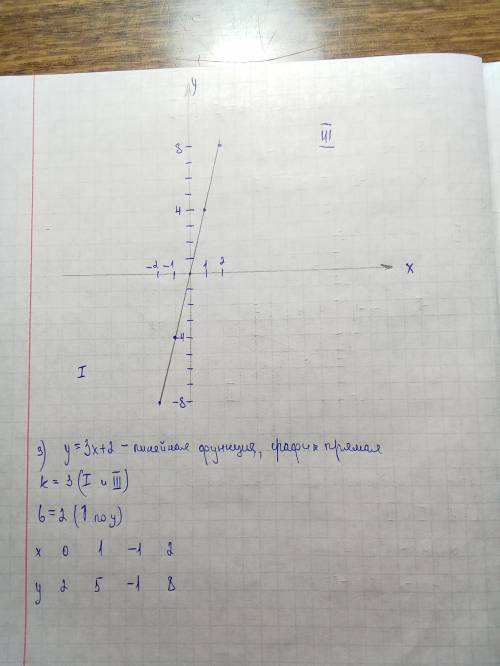 y
8
III
4
-2 -1 1 2
x
-4
I
-8
3) y=3x+2 - линейная функция, график прямая
k=3 (I и III)
b=2 (↑ по y)
x 0 1 -1 2
y 2 5 -1 8